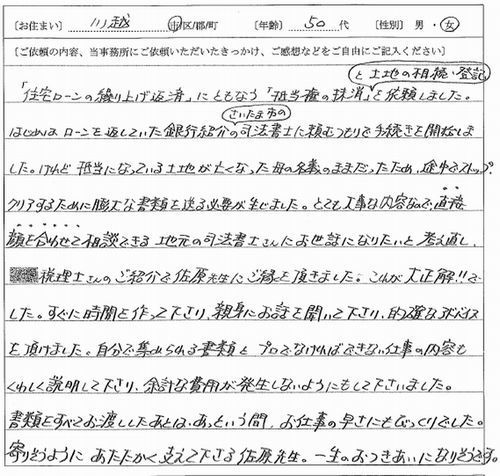 ［お住まい］ 川越 市/区/郡/町 ［年齢］ 50 代 ［性別］ 男・女
［ご依頼の内容、当事務所にご依頼いただいたきっかけ、ご感想などをご自由にご記入ください］
と土地の相続・登記
「住宅ローンの繰り上げ返済」にともなう「抵当権の抹消」を依頼しました。
さいたま市の
はじめは ローンを返していた銀行紹介の司法書士に頼むつもりで手続きを開始しま
した。けれど 抵当になっている土地が亡くなった母の名義のままだったため、途中でストップ。
クリアするために膨大な書類を送る必要が生じました。とても大事な内容なので、直接
顔を合わせて相談できる 地元の司法書士さんにお世話になりたいと 考え直し、
税理士さんのご紹介で佐原先生にご縁を頂きました。これが大正解!!で
した。すぐに時間を作って下さり、親身にお話を聞いて下さり、的確なアドバイス
を頂けました。自分で集められる書類と プロでなければできない仕事の内容も
くわしく説明して下さり、余計な費用が発生しないようにもして下さいました。
書類をすべてお渡ししたあとは、あっという間。お仕事の早さにもびっくりでした。
寄りそうように あたたかく支えて下さる佐原先生。一生のおつきあいになりそうです。